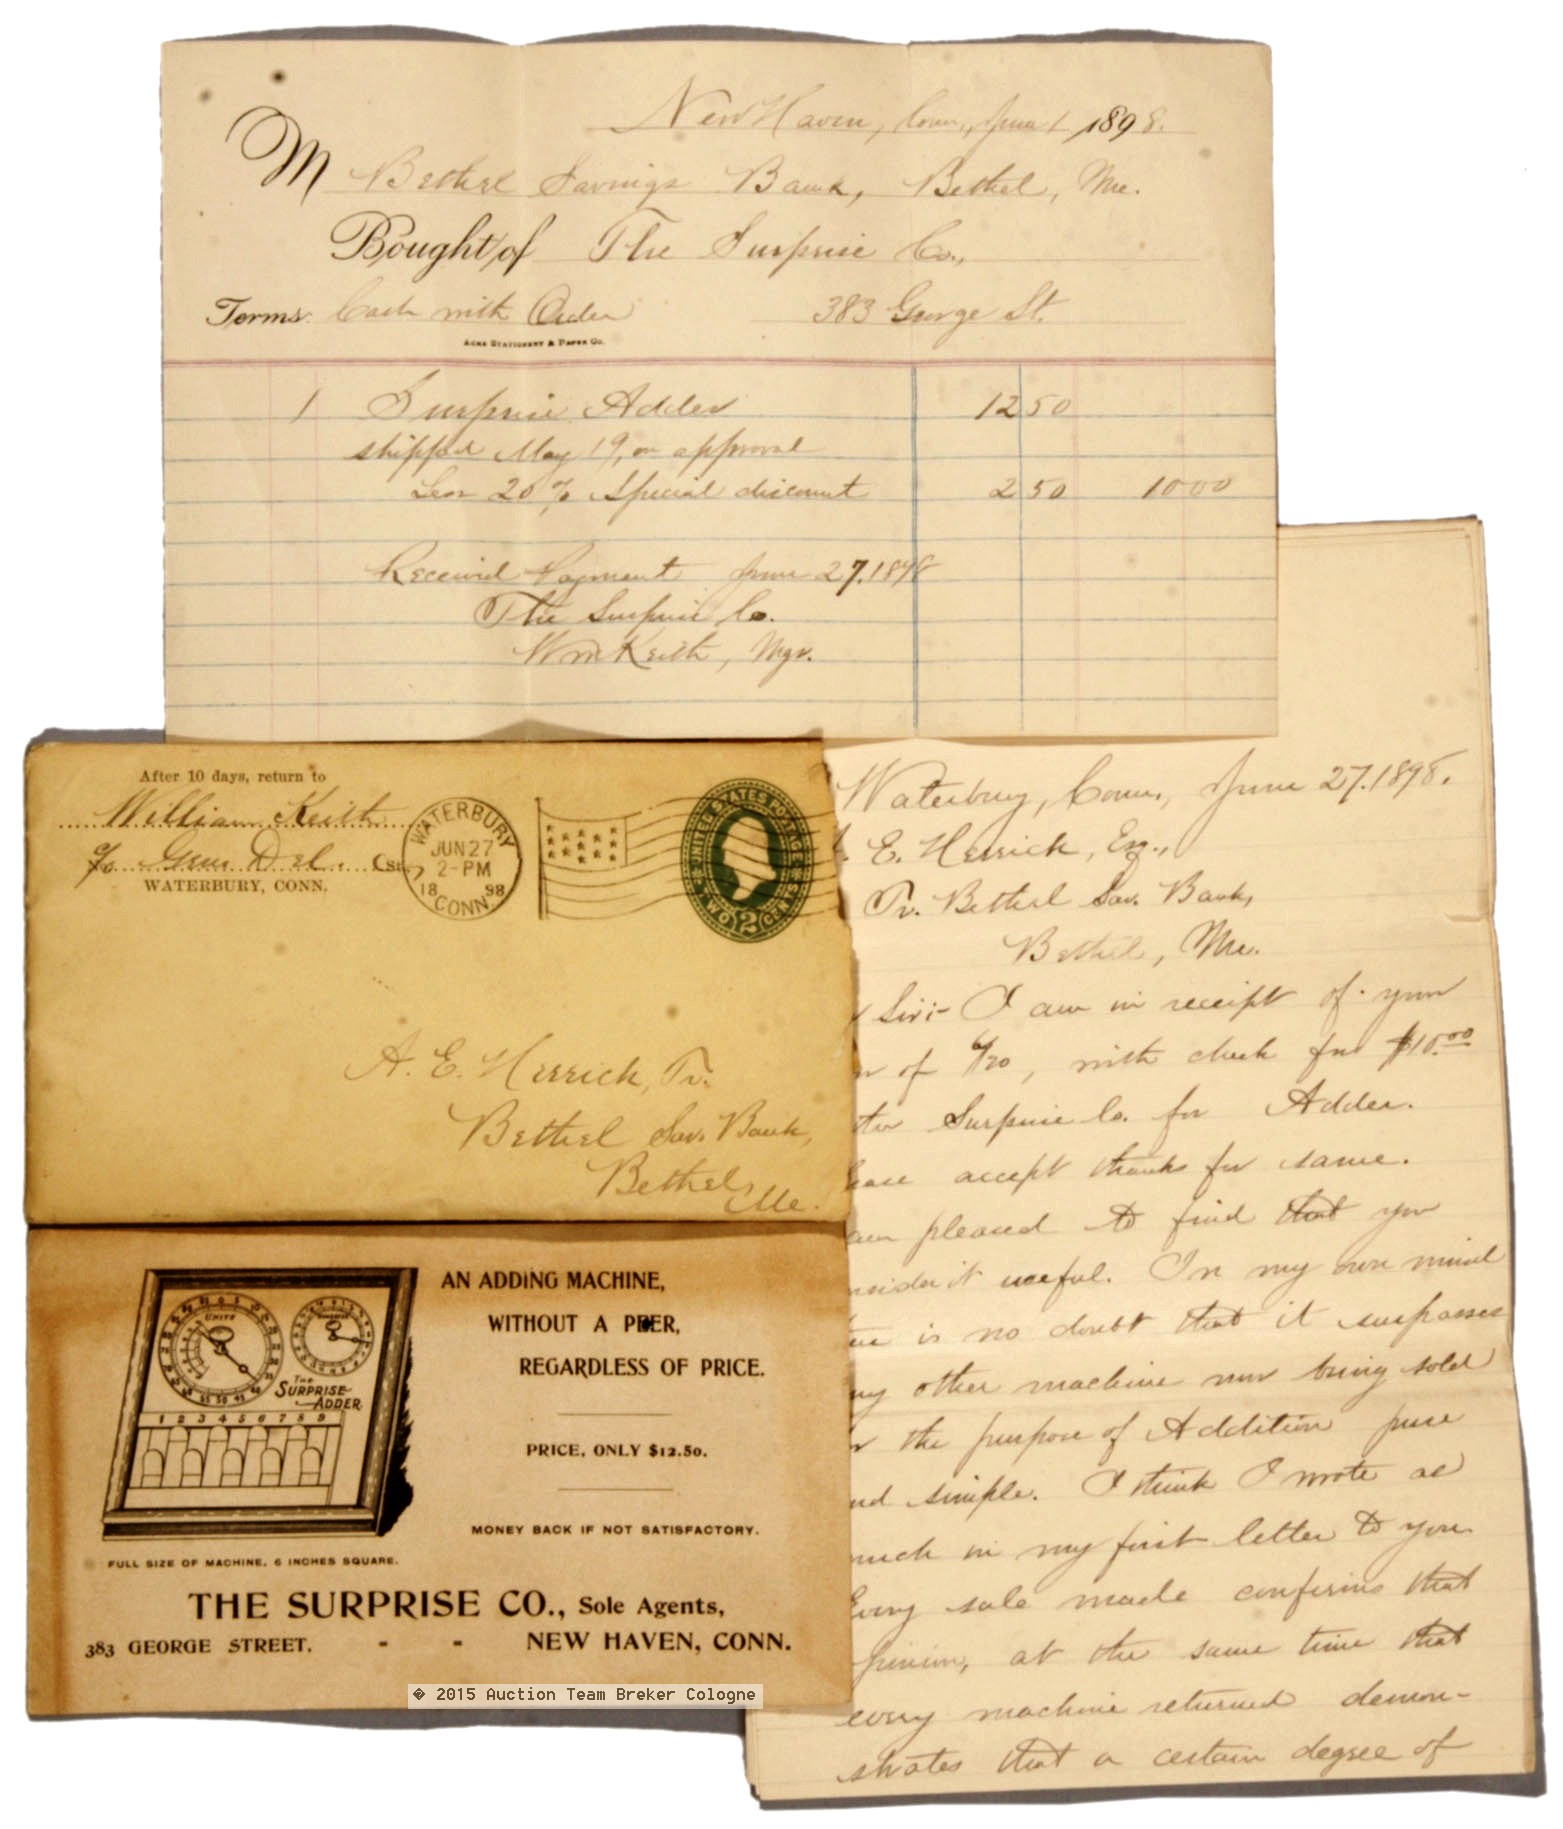 New Haven, Conn., June 1 1898.
M Bethel Savings Bank, Bethel, Me.
Bought of The Surprise Co.,
Terms: Cash with Order 383 George St.
ACME STATIONERY & PAPER CO.
1 Surprise Adder 12 50
shipped May 19, on approval
Less 20% Special discount 2 50 10 00
Received Payment June 27. 1898
The Surprise Co.
Wm Keith, Mgr.
After 10 days, return to
William Keith
c/o Genl Del.
WATERBURY, CONN.
WATERBURY
JUN 27
2-PM
18 98
CONN.
UNITED STATES POSTAGE
TWO 2 CENTS
A. E. Herrick, Tr.
Bethel Sav. Bank,
Bethel,
Me.
AN ADDING MACHINE,
WITHOUT A PEER,
REGARDLESS OF PRICE.
PRICE, ONLY $12.50.
MONEY BACK IF NOT SATISFACTORY.
UNITS
THE
SURPRISE
ADDER
1 2 3 4 5 6 7 8 9
FULL SIZE OF MACHINE, 6 INCHES SQUARE.
THE SURPRISE CO., Sole Agents,
383 GEORGE STREET. - - NEW HAVEN, CONN.
� 2015 Auction Team Breker Cologne
Waterbury, Conn., June 27. 1898.
. E. Herrick, Esq.,
Tr. Bethel Sav. Bank,
Bethel, Me.
Sir:- I am in receipt of your
of 6/20, with check for $10.00
Surprise Co. for Adder.
accept thanks for same.
am pleased to find that you
nsider it useful. In my own mind
is no doubt that it surpasses
ny other machine now being sold
the purpose of Addition pure
nd simple. I think I wrote as
much in my first letter to you.
Every sale made confirms that
pinion, at the same time that
every machine returned demon-
strates that a certain degree of